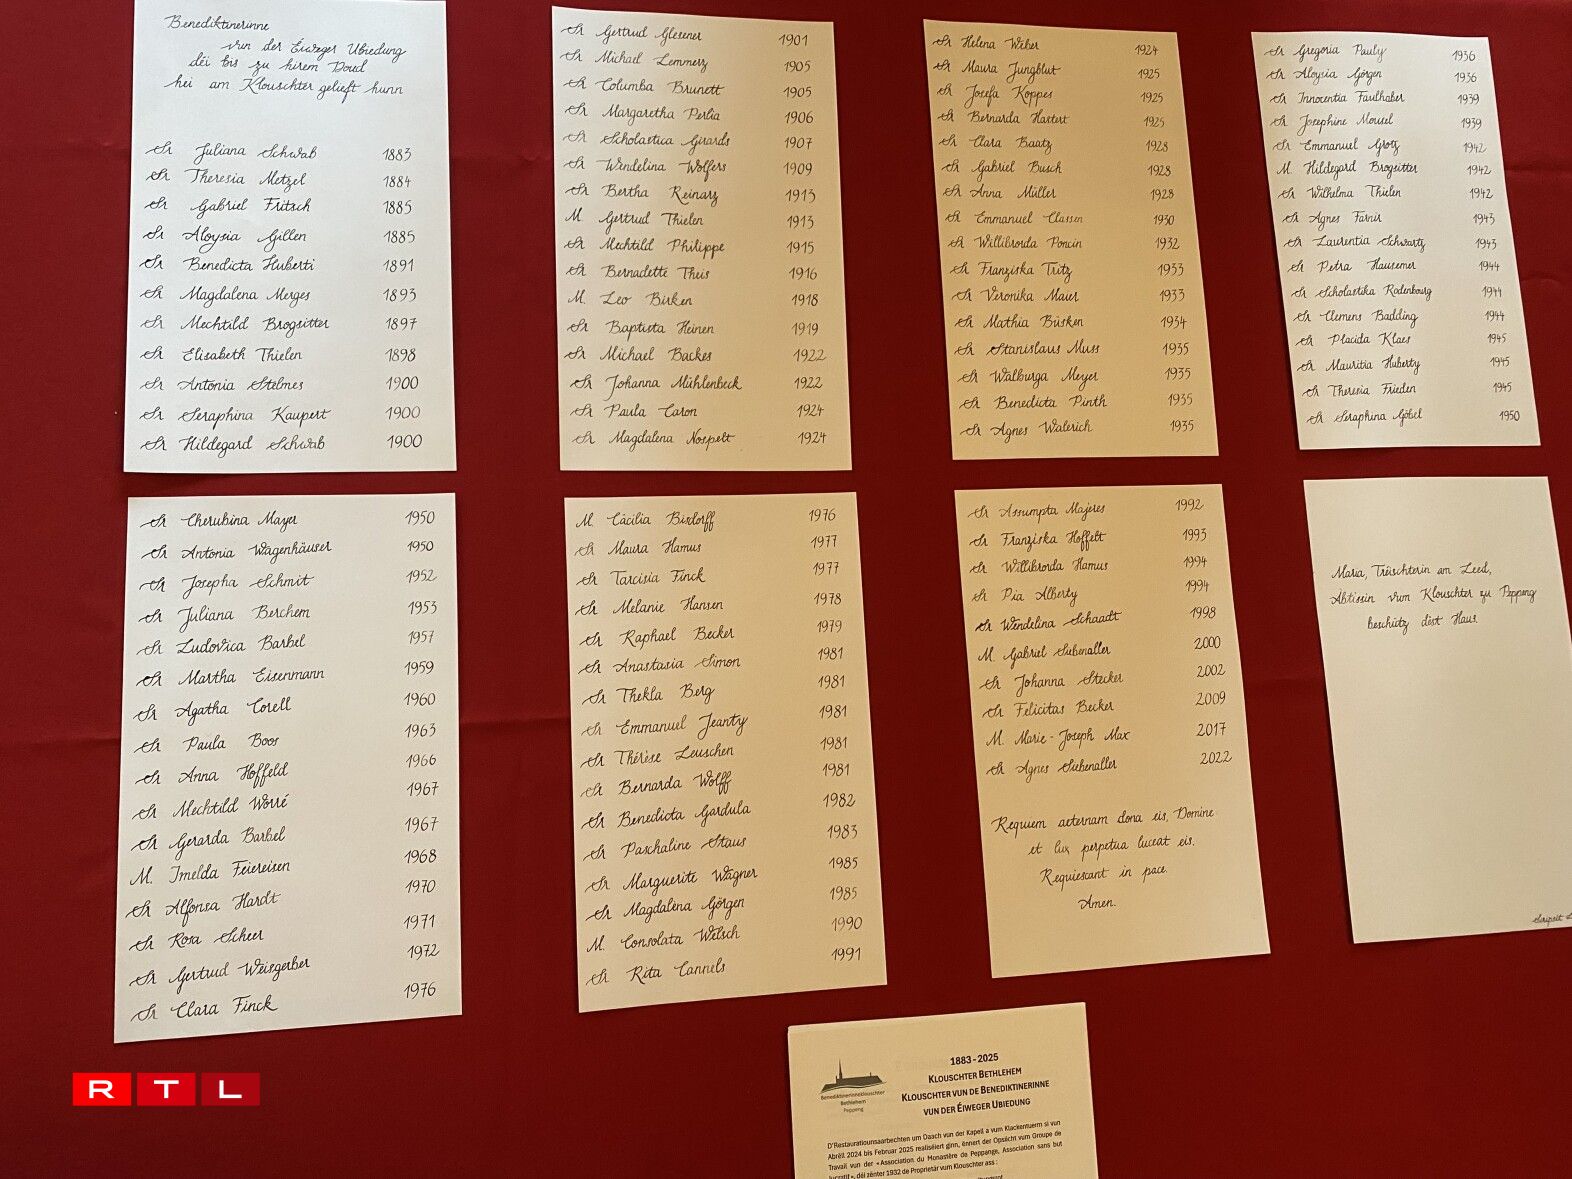 Benediktinerinne
vun der Éiweger Ubiedung
déi bis zu hirem Doud
hei am Klouschter gelieft hunn
Sr Juliana Schwab 1883
Sr Theresia Metzel 1884
Sr Gabriel Fritsch 1885
Sr Aloysia Gillen 1885
Sr Benedicta Huberti 1891
Sr Magdalena Merges 1893
Sr Mechtild Brogsitter 1897
Sr Elisabeth Thielen 1898
Sr Antonia Stelmes 1900
Sr Seraphina Kaupert 1900
Sr Hildegard Schwab 1900
Sr Gertrud Glesener 1901
Sr Michael Lemmerz 1905
Sr Columba Brunett 1905
Sr Margaretha Perlia 1906
Sr Scholastica Girards 1907
Sr Wendelina Wolfers 1909
Sr Bertha Reinarz 1913
M. Gertrud Thielen 1913
Sr Mechtild Philippe 1915
Sr Bernadette Theis 1916
M. Leo Birken 1918
Sr Baptista Heinen 1919
Sr Michael Backes 1922
Sr Johanna Mühlenbeck 1922
Sr Paula Caron 1924
Sr Magdalena Nospelt 1924
Sr Helena Wiher 1924
Sr Maura Jungblut 1925
Sr Josefa Koppes 1925
Sr Bernarda Hastert 1925
Sr Clara Baatz 1928
Sr Gabriel Busch 1928
Sr Anna Müller 1928
Sr Emmanuel Classen 1930
Sr Willibrorda Poncin 1932
Sr Franziska Tritz 1933
Sr Veronika Maier 1933
Sr Mathia Büsken 1934
Sr Stanislaus Muss 1935
Sr Walburga Meyer 1935
Sr Benedicta Pinth 1935
Sr Agnes Walerich 1935
Sr Gregoria Pauly 1936
Sr Aloysia Görgen 1936
Sr Innocentia Faulhaber 1939
Sr Josephine Mousel 1939
Sr Emmanuel Grotz 1942
M. Hildegard Brogsitter 1942
Sr Wilhelma Thielen 1942
Sr Agnes Farnir 1943
Sr Laurentia Schwartz 1943
Sr Petra Hausemer 1944
Sr Scholastika Rodenbourg 1944
Sr Clemens Badding 1944
Sr Placida Klaes 1945
Sr Mauritia Huberty 1945
Sr Theresia Frieden 1945
Sr Seraphina Göbel 1950
Sr Cherubina Mayer 1950
Sr Antonia Wagenhäuser 1950
Sr Josepha Schmit 1952
Sr Juliana Berchem 1953
Sr Ludovica Barbel 1957
Sr Martha Eisenmann 1959
Sr Agatha Corell 1960
Sr Paula Boos 1963
Sr Anna Hoffeld 1966
Sr Mechtild Worré 1967
Sr Gerarda Barbel 1967
M. Imelda Feiereisen 1968
Sr Alfonsa Hardt 1970
Sr Rosa Scheer 1971
Sr Gertrud Weisgerber 1972
Sr Clara Finck 1976
M. Cäcilia Bisdorff 1976
Sr Maura Hamus 1977
Sr Tarcisia Finck 1977
Sr Melanie Hansen 1978
Sr Raphael Becker 1979
Sr Anastasia Simon 1981
Sr Thekla Berg 1981
Sr Emmanuel Jeanty 1981
Sr Thérèse Leuschen 1981
Sr Bernarda Wolff 1981
Sr Benedicta Gardula 1982
Sr Paschaline Staus 1983
Sr Marguerite Wagner 1985
Sr Magdalena Görgen 1985
M. Consolata Welsch 1990
Sr Rita Cannels 1991
Sr Assumpta Majeres 1992
Sr Franziska Hoffelt 1993
Sr Willibrorda Hamus 1994
Sr Pia Alberty 1994
Sr Wendelina Schaadt 1998
M. Gabriel Siebenaller 2000
Sr Johanna Stecker 2002
Sr Felicitas Becker 2009
M. Marie-Joseph Max 2017
Sr Agnes Siebenaller 2022
Requiem aeternam dona eis, Domine
et lux perpetua luceat eis.
Requiescant in pace.
Amen.
Maria, Tréischterin am Leed,
Äbtissin vum Klouschter zu Peppeng
beschütz dëst Haus.
Scripsit
Benediktinerinneklouschter
Bethlehem
Peppeng
1883 - 2025
KLOUSCHTER BETHLEHEM
KLOUSCHTER VUN DE BENEDIKTINERINNE
VUN DER ÉIWEGER UBIEDUNG
D'Restauratiounsaarbechten um Daach vun der Kapell a vum Klackentuerm si vun
Abrëll 2024 bis Februar 2025 realiséiert ginn, ënnert der Opsiicht vum Groupe de
Travail vun der «Association du Monastère de Peppange, Association sans but
lucratif», déi zënter 1932 de Proprietär vum Klouschter ass :
RTL